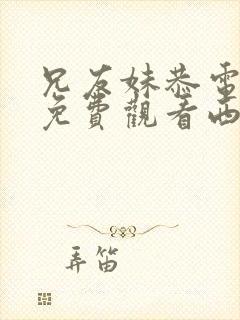 兄友妹恭電
免費觀看西
弄笛